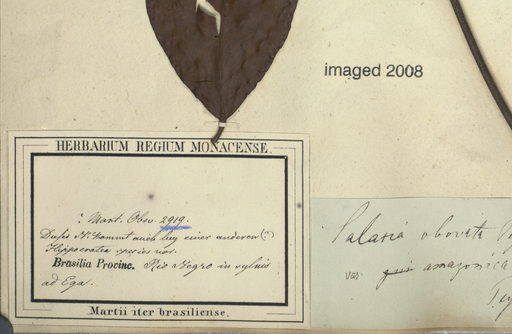 imaged 2008
HERBARIUM REGIUM MONACENSE.
: Mart. Obs. 2919.
Diese Nr. kommt auch bey einer anderen (?)
Hippocratea species vor.
Brasilia Provinc. Rio Negro in sylvis
ad Ega.
Martii iter brasiliense.
Salacia obovata
var. amazonica